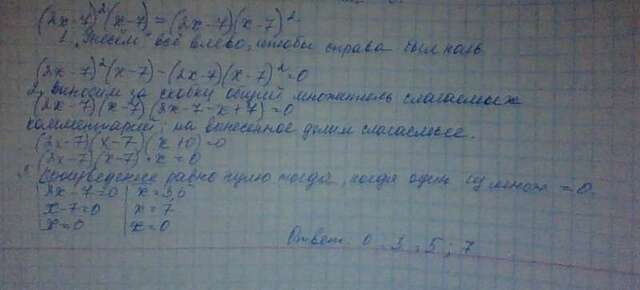 (2x-7)²(x-7) = (2x-7)(x-7)²
1. всё влево, чтобы справа был ноль
(2x-7)²(x-7) - (2x-7)(x-7)² = 0
2. выносим за скобку общий множитель слагаемых
(2x-7)(x-7)(2x-7-x+7) = 0
комментарий: на вынесенное делим слагаемые.
(2x-7)(x-7)(x+0)=0
(2x-7)(x-7)·x = 0
произведение равно нулю тогда, когда один из множ = 0.
2x-7=0 | x=3,5
x-7=0 | x=7,
x=0 | x=0
Ответ: 0 3,5; 7